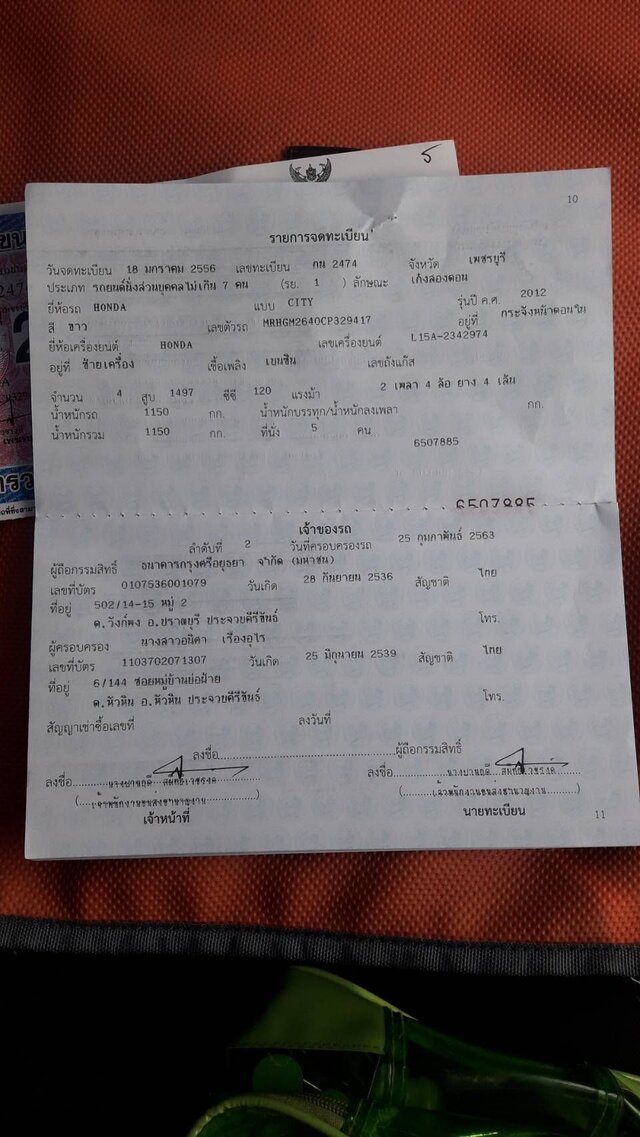 5
10
รายการจดทะเบียน
วันจดทะเบียน 18 มกราคม 2556 เลขทะเบียน กน 2474 จังหวัด เพชรบุรี
ประเภท รถยนต์นั่งส่วนบุคคลไม่เกิน 7 คน (รย. 1 ) ลักษณะ เก๋งสองตอน
ยี่ห้อรถ HONDA แบบ CITY รุ่นปี ค.ศ. 2012
สี ขาว เลขตัวรถ MRHGM2640CP329417 อยู่ที่ กระจังหน้าตอนใน
ยี่ห้อเครื่องยนต์ HONDA เลขเครื่องยนต์ L15A-2342974
อยู่ที่ ซ้ายเครื่อง เชื้อเพลิง เบนซิน เลขถังแก๊ส
จำนวน 4 สูบ 1497 ซีซี 120 แรงม้า 2 เพลา 4 ล้อ ยาง 4 เส้น
น้ำหนักรถ 1150 กก. น้ำหนักบรรทุก/น้ำหนักลงเพลา กก.
น้ำหนักรวม 1150 กก. ที่นั่ง 5 คน
6507885
6507885
เจ้าของรถ
ลำดับที่ 2 วันที่ครอบครองรถ 25 กุมภาพันธ์ 2563
ผู้ถือกรรมสิทธิ์ ธนาคารกรุงศรีอยุธยา จำกัด (มหาชน)
เลขที่บัตร 0107536001079 วันเกิด 28 กันยายน 2536 สัญชาติ ไทย
ที่อยู่ 502/14-15 หมู่ 2
ต.วังก์พง อ.ปราณบุรี ประจวบคีรีขันธ์ โทร.
ผู้ครอบครอง นางสาวอนิตา เรืองอุไร
เลขที่บัตร 1103702071307 วันเกิด 25 มิถุนายน 2539 สัญชาติ ไทย
ที่อยู่ 6/144 ซอยหมู่บ้านบ่อฝ้าย
ต.หัวหิน อ.หัวหิน ประจวบคีรีขันธ์ โทร.
สัญญาเช่าซื้อเลขที่ ลงวันที่
ลงชื่อ ผู้ถือกรรมสิทธิ์
ลงชื่อ ลงชื่อ
(เจ้าพนักงานขนส่งชำนาญงาน) (เจ้าพนักงานขนส่งชำนาญงาน)
เจ้าหน้าที่ นายทะเบียน
11